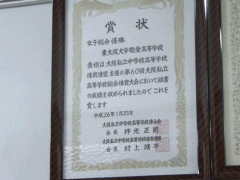 賞状
女子総合優勝
東大阪大学敬愛高等学校
貴校は大阪私立中学校高等学校
体育連盟主催の第60回大阪私立
高等学校総合体育大会において頭書
の成績を収められましたのでこれを
賞します
平成26年1月25日
大阪私立中学校高等学校連合会
会長 坪光正躬
大阪私立中学校高等学校体育連盟
会長 村上靖平